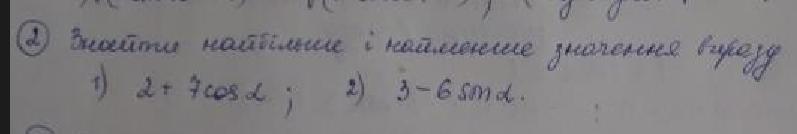 2 Знайти найбільше і найменше значення виразу
1) 2 + 7cosα ; 2) 3 - 6 sinα.